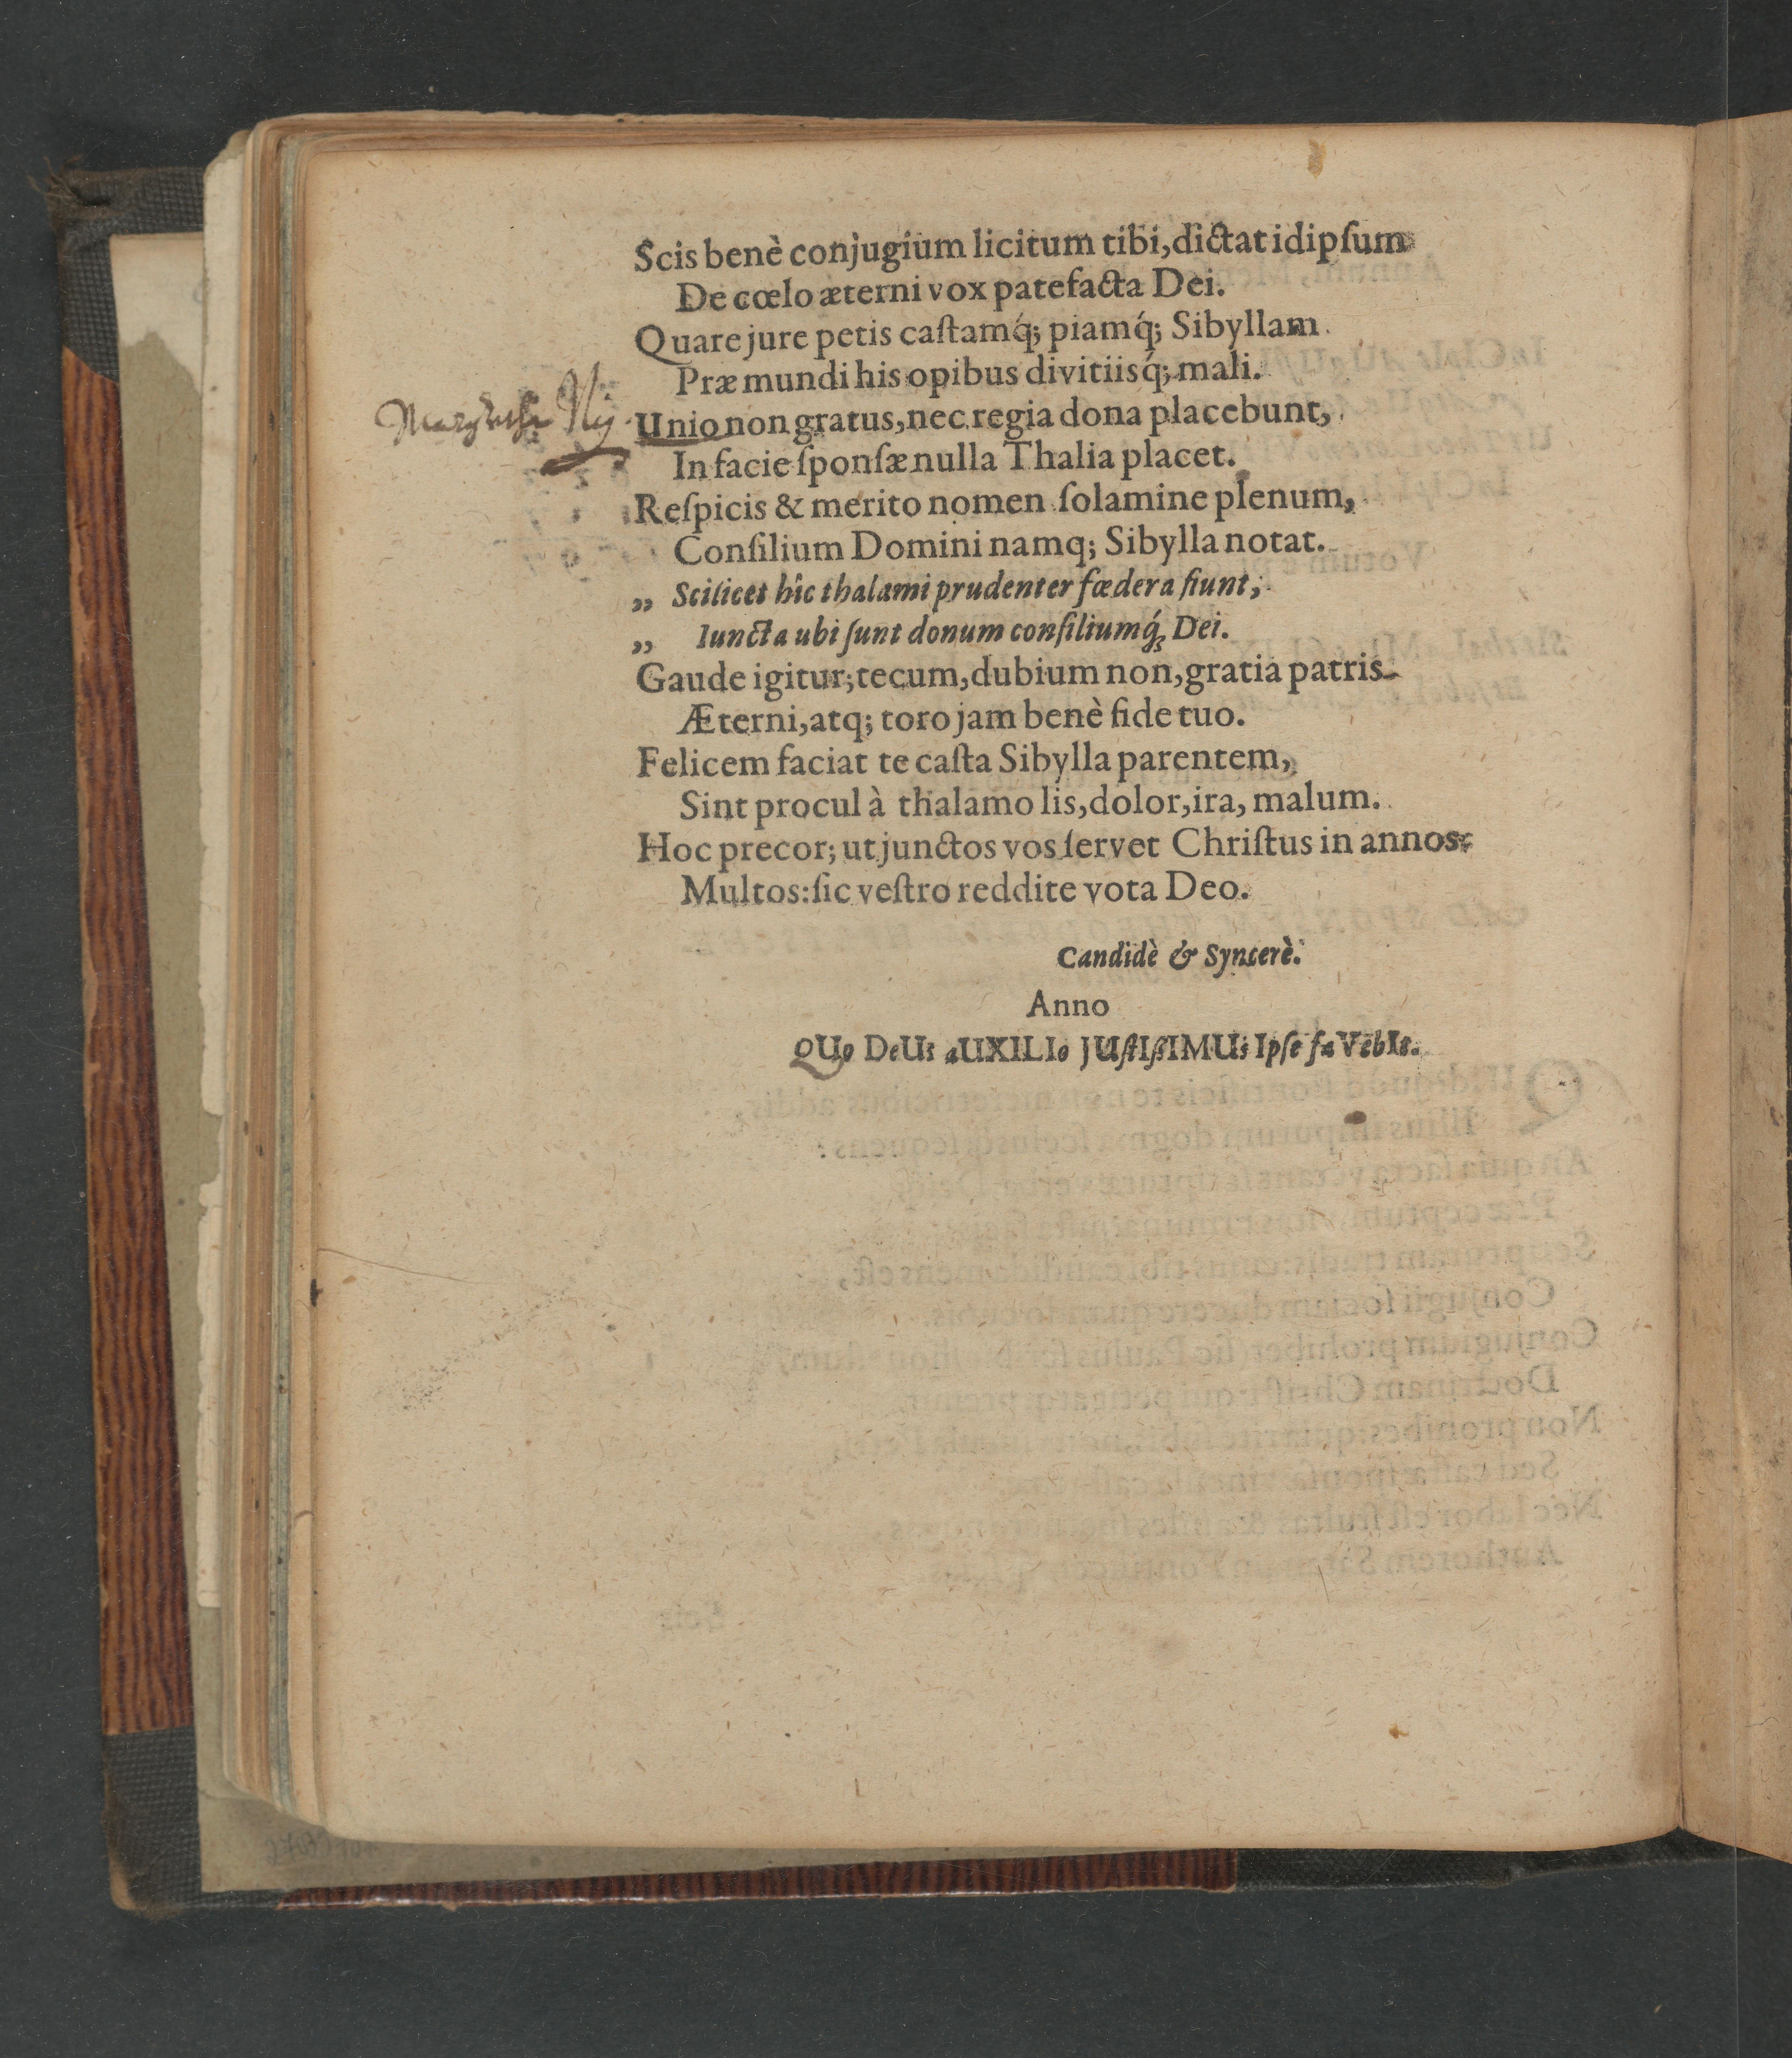 Scis benè conjugium licitum tibi, dictat idipſum
De cœlo æterni vox patefacta Dei.
Quare jure petis caſtamq́; piamq́; Sibyllam
Præ mundi his opibus divitiisq́; mali.
Unio non gratus, nec regia dona placebunt,
In facie ſponſæ nulla Thalia placet.
Reſpicis & merito nomen ſolamine plenum,
Conſilium Domini namq; Sibylla notat.
„ Scilicet hîc thalami prudenter fœdera fiunt,
„ Iuncta ubi ſunt donum conſiliumq́; Dei.
Gaude igitur; tecum, dubium non, gratia patris
Æterni, atq; toro jam benè fide tuo.
Felicem faciat te caſta Sibylla parentem,
Sint procul à thalamo lis, dolor, ira, malum.
Hoc precor; ut junctos vos ſervet Chriſtus in annos
Multos: ſic veſtro reddite vota Deo.
Candidè & Syncerè.
Anno
QUo DeUs aUXILIo JUſtIßIMUs Ipſe faVebIt.